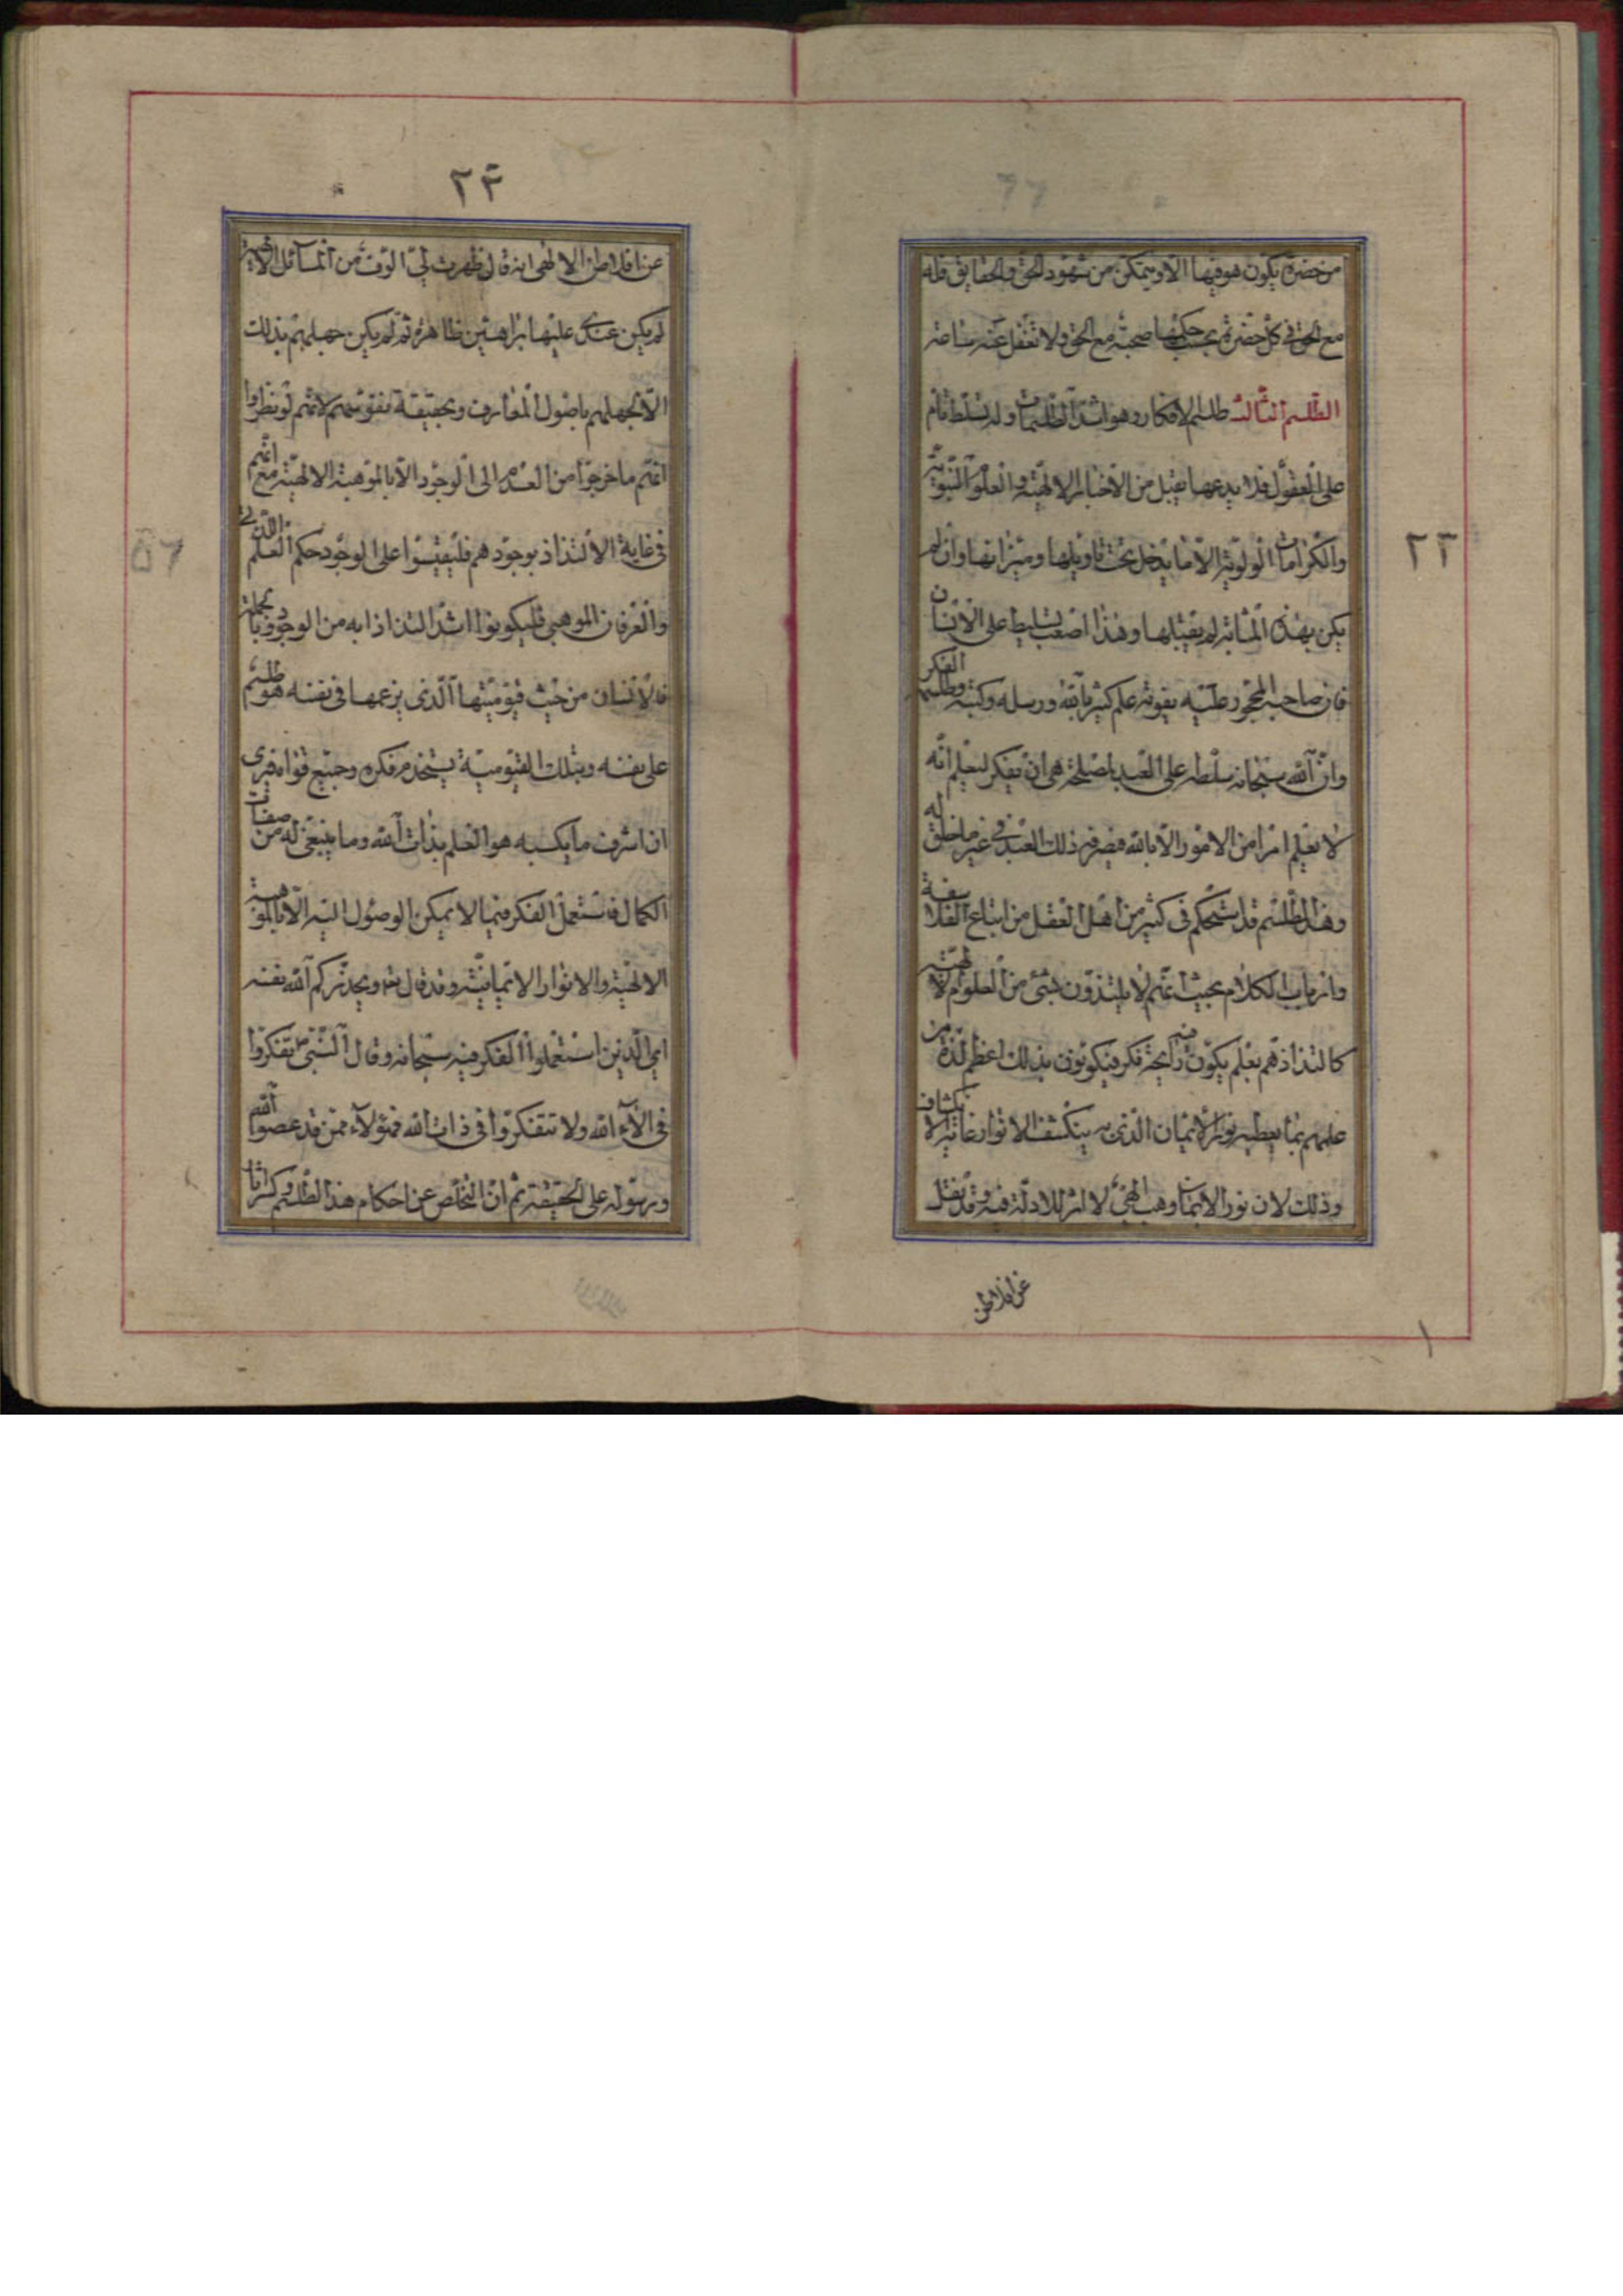 من حضرة يكون هو فيها الا ويتمكن من شهود الحق والحقايق فله
مع الحق في كل حضرة بحسب حكمها صحبة مع الحق ولا تغفل عنه
الطلسم الثالث طلسم الافكار وهو اشد الطلسمات وله تسلط تام
على العقول فلا يدعها تقبل من الاخبار الالهية والعلوم النبوية
والكرامات الا ما يدخل تحت تاويلها وميزانها وان لم
يكن بهذه المثابة لم يقبلها وهذا اصعب تسليط على الانسان
فان صاحبه المحجور عليه يفوته علم كثير بالله ورسله وكتبه وطلسم الفكر
وان الله سبحانه سلطه على العبد لمصلحة هى ان يفكر ليعلم انه
لا يعلم امرا من الامور الا بالله فيصرفه ذلك العبد في غير ما خلق له
وهذا الطلسم قد استحكم فى كثير من اهل العقل من اتباع الفلاسفة
وارباب الكلام بحيث انهم لا يلتذون بشئ من العلوم الالهية
كالتذاذهم بعلم يكون فيه رايحة فكر فيكونون بذلك اعظم لذة من
علمهم بما يعطيه نور الايمان الذى به ينكشف الانوار غاية الانكشاف
وذلك لان نور الايمان وهب الهى لا اثر للادلة فيه وقد نقل
عن افلاطن
٢٣
٢٣
عن افلاطن الالهى انه قال ظهرت لى الوف من المسائل
لم يكن عندى عليها براهين ظاهرة ثم لم يكن جهلهم بذلك
الا لجهلهم باصول المعارف وبحقيقة نفوسهم لانهم لو نظروا
انهم ما خرجوا من العدم الى الوجود الا بالموهبة الالهية مع انهم
فى غاية الالتذاذ بوجودهم فليقيسوا على الوجود حكم العلم اللدنى
والعرفان الموهبى فليكونوا اشد التذاذا به من الوجود وبالجملة
فالانسان من حيث قيوميتها الذى يزعمها فى نفسه هو طلسم
على نفسه وبتلك القيومية يستخدم فكره وجميع قواه فيرى
ان اشرف ما يكسبه هو العلم بذات الله وما ينبغى له من صفات
الكمال فاستعمل الفكر فيما لا يمكن الوصول اليه الا بالموهبة
الالهية والانوار الايمانية وقد قال تعالى ويحذركم الله نفسه
اى الذين استعملوا الفكر فيه سبحانه وقال النبى ص تفكروا
فى آلاء الله ولا تتفكروا فى ذات الله فهؤلاء ممن قد عصوا الله
ورسوله على الحقيقة ثم ان التخلص عن احكام هذا الطلسم